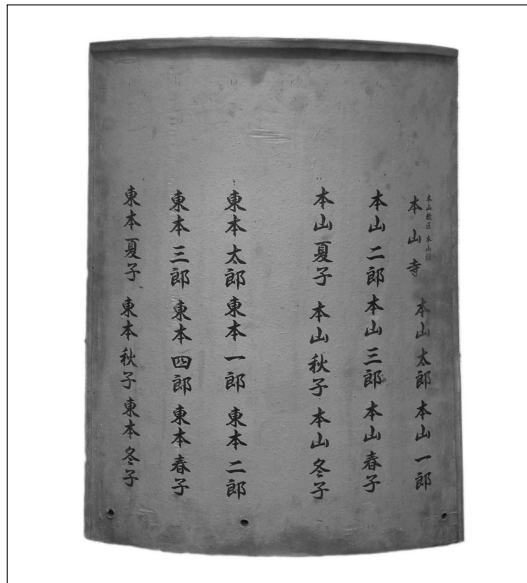 本山教区 本山組
本山寺 本山太郎 本山一郎
本山二郎 本山三郎 本山春子
本山夏子 本山秋子 本山冬子
東本太郎 東本一郎 東本二郎
東本三郎 東本四郎 東本春子
東本夏子 東本秋子 東本冬子